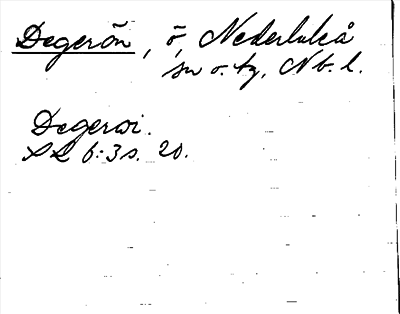 Degerön, ö, Nederluleå
sn o. tg, Nb. l.
Degerwi.
SL 6:3 s. 20.